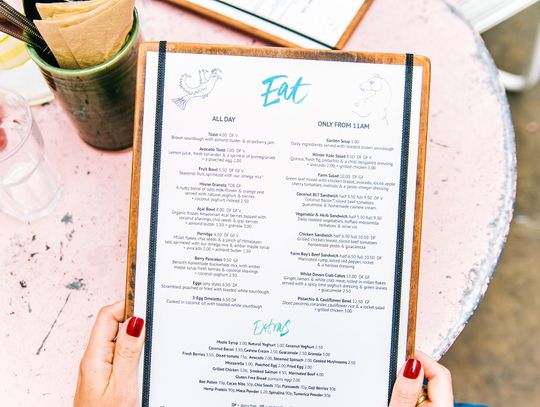 Eat
ALL DAY
Toast 4.00 DF V
Brown sourdough with almond butter & strawberry jam
Avocado Toast 7.00
DF V
Lemon juice, fresh coriander & a sprinkle of pomegranate
+ a poached egg 2.00
Fruit Bowl 5.50
DF GF V
Seasonal fruit, sprinkled with our omega mix*
House Granola 7.00
GF V
A nutty blend of oats, mixed with
served with natural yoghurt & berries
+ coconut yoghurt instead 2.50
Açai Bowl 8.00
DF GF V
Organic frozen Amazonian Acai berries topped with
coconut shavings, chia seeds & goji berries
+ almond butter 1.50 + granola 3.00
Porridge 6.50
DF GF V
Millet flakes, chia seeds & a pinch of Himalayan
salt, sprinkled with our omega mix & amber maple syrup
+ avocado 2.00 + almond butter 1.50
Berry Pancakes 9.50
GF
homemade buckwheat mix, with amber
maple syrup fresh berries & coconut shavings
+ coconut yoghurt 2.50
Eggs (any style) 6.50
DF
Scrambled poached or fried with toasted white sourdough
3-Egg Omelette 6.50
DF
Cooked in coconut oil with toasted white sourdough
ONLY FROM 11AM
Garden Soup 5.00
Daily ingredients served with toasted brown sourdough
Winter Kale Salad 8.50
DF V
Quinoa, fresh fig, pistachio & a chilli bergamot dressing
+ avocado 2.00 + grilled chicken 3.00
Farm Salad 10.00
DF GF
Green leaf mixed with chicken breast, avocado, sliced apple
cherry tomatoes, walnuts & a pesto vinegar dressing
Coconut BLT Sandwich half 5.50 full 9.50
DF V
Coconut 'bacon', sliced beef tomatoes
guacamole & homemade cashew cream
Vegetable & Herb Sandwich half 5.50 full 9.50
Daily roasted vegetables, buffalo mozzarella
tomatoes & olive oil
Chicken Sandwich half 6.00 full 10.00
DF
Grilled chicken breast, sliced beef tomatoes
homemade pesto & guacamole
Farm Boy's Beef Sandwich half 6.00 full 10.00
DF
Marinated rump, sliced red pepper, rocket
& a harissa dressing
White Devon Crab Cakes 13.00
DF GF
Ginger, lemon & white crab meat, rolled in coconut flakes
served with a spicy lime yoghurt dressing & green leaves
+ guacamole 2.50
Pistachio & Cauliflower Bowl 12.50
GF
Sliced pecorino, coriander, cauliflower rice & a rocket salad
+ grilled chicken 3.00
Extras
Maple Syrup 1.00, Natural Yoghurt 1.00, Coconut Yoghurt 1.50
Coconut Bacon 2.50, Cashew Cream 2.50, Guacamole 2.50, Granola 3.00
Fresh Berries 3.50, Diced tomato 75p, Avocado 2.00, Steamed Spinach 2.00, Cooked Mushrooms 2.50
Mozzarella 1.00, Poached Egg 2.00, Fried Egg 2.00
Grilled Chicken 3.00, Smoked Salmon 4.50, Marinated Beef 4.00
Gluten Free Bread (contains egg) 2.00
Bee Pollen 75p, Cacao Nibs 50p, Chia Seeds 50p, Flaxseeds 75p, Goji Berries 50p
Hemp Protein 90p, Maca Powder 50p, Spirulina 90p, Turmerica Powder 50p